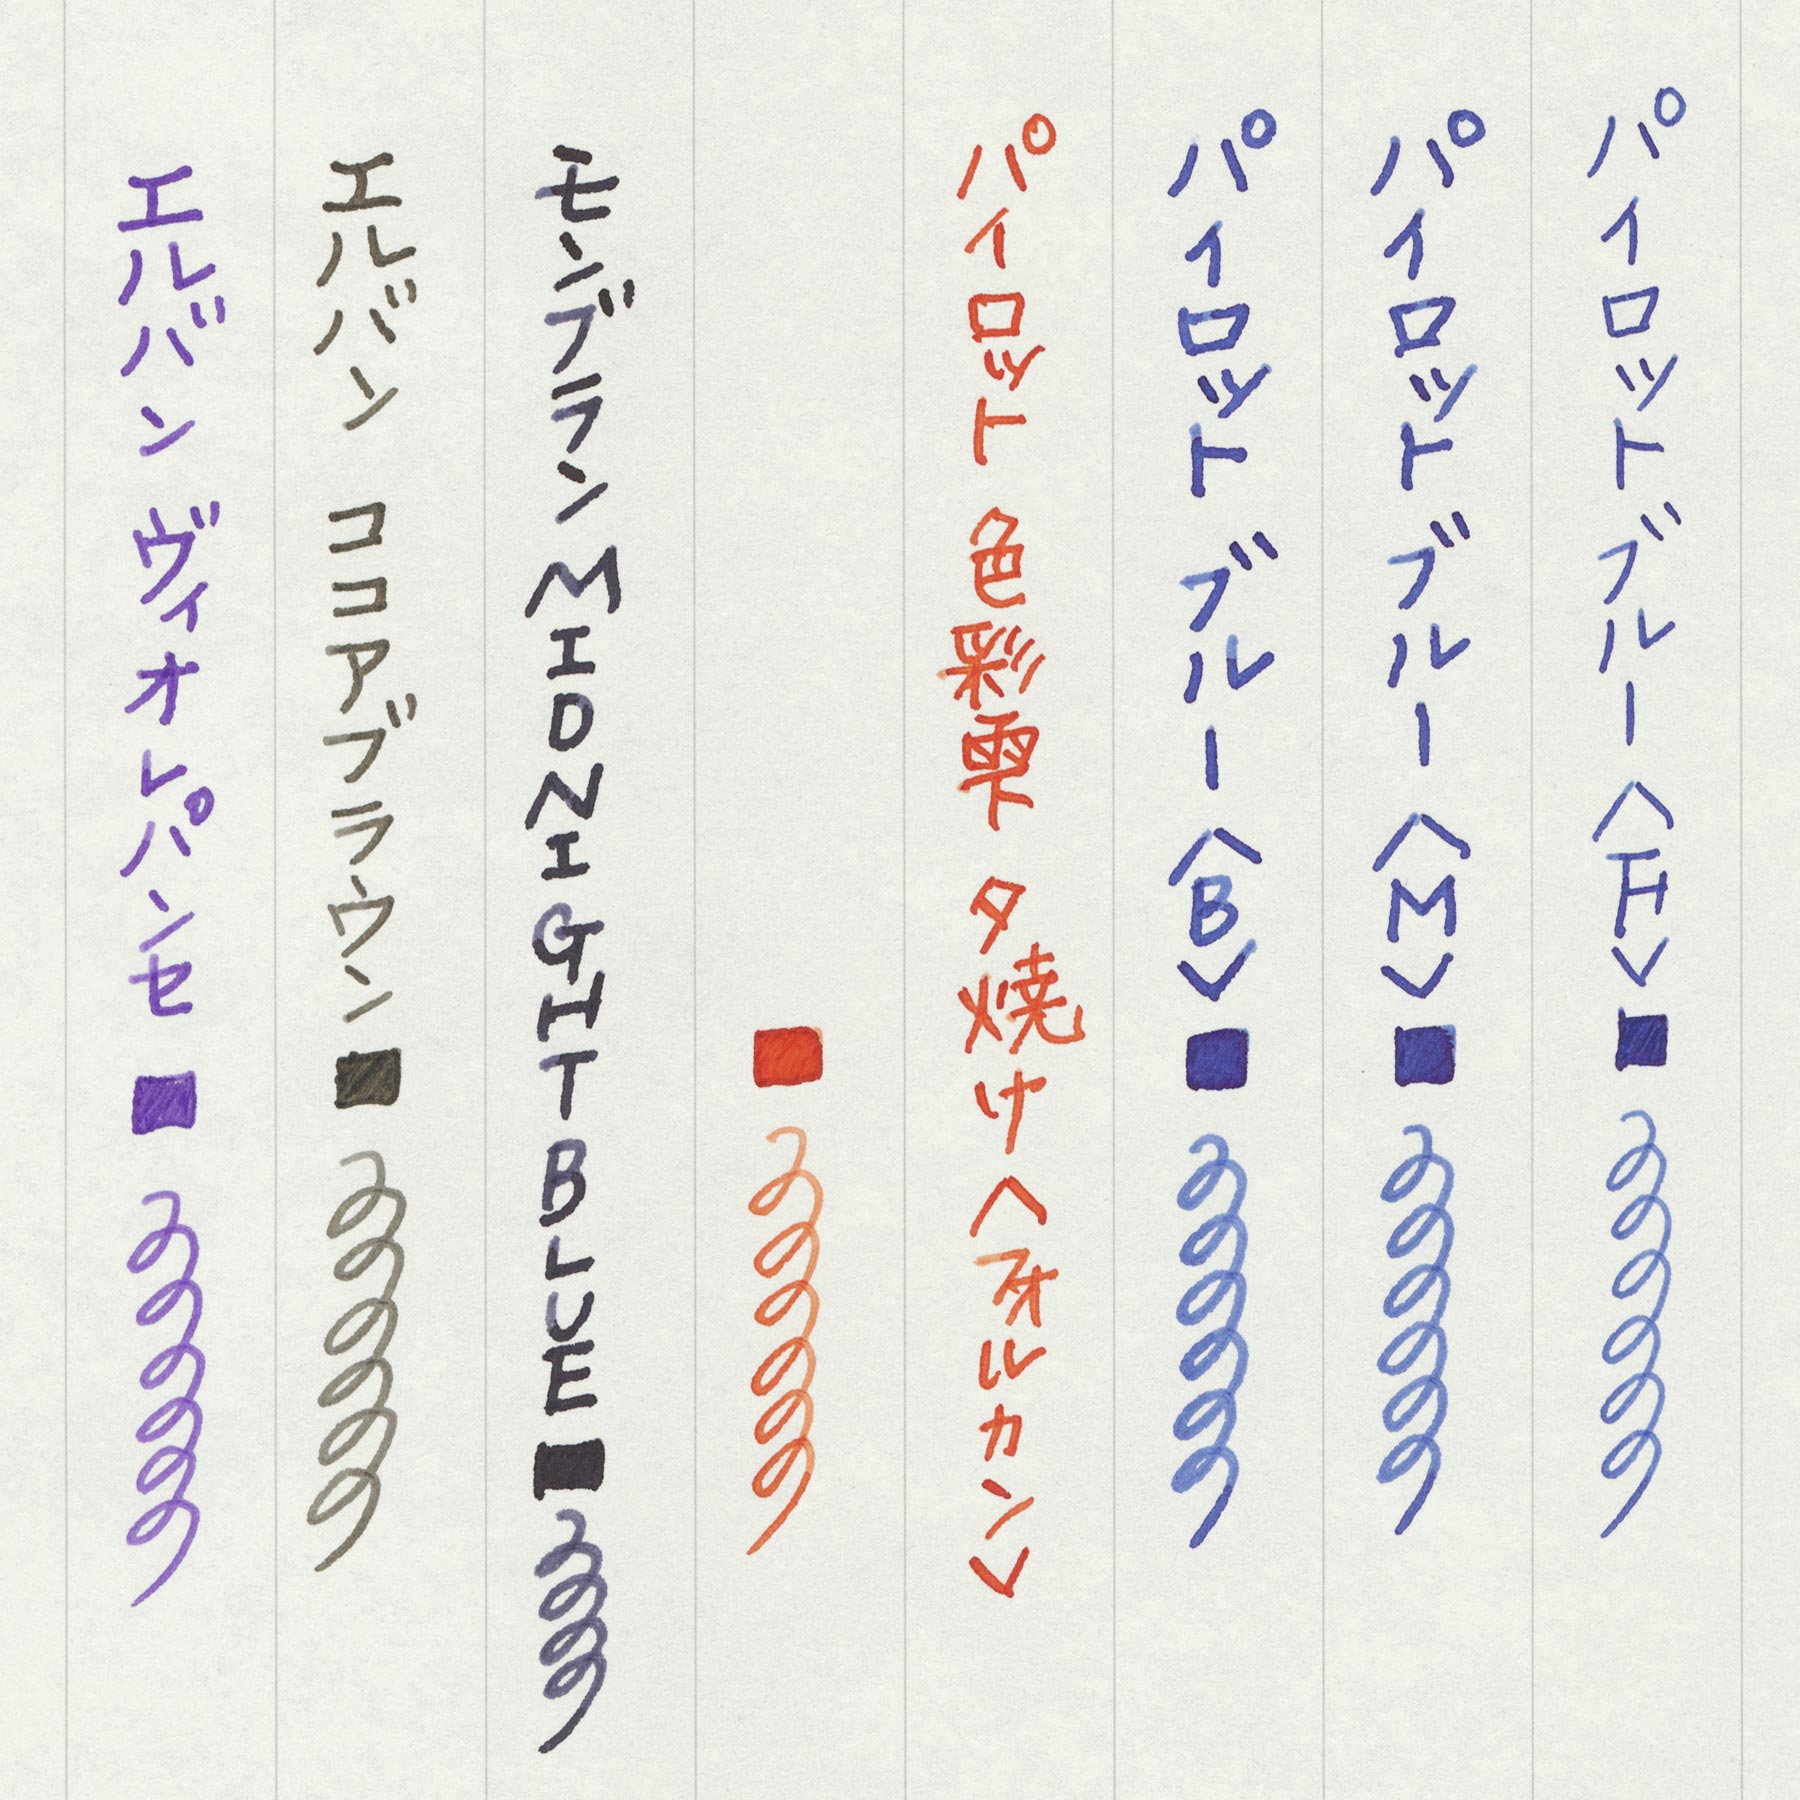 パイロット ブルー〈F〉■
パイロット ブルー〈M〉■
パイロット ブルー〈B〉■
パイロット 色彩雫 夕焼け〈フォルカン〉
■
モンブラン MIDNIGHT BLUE■
エルバン ココアブラウン■
エルバン ヴィオレパンセ■